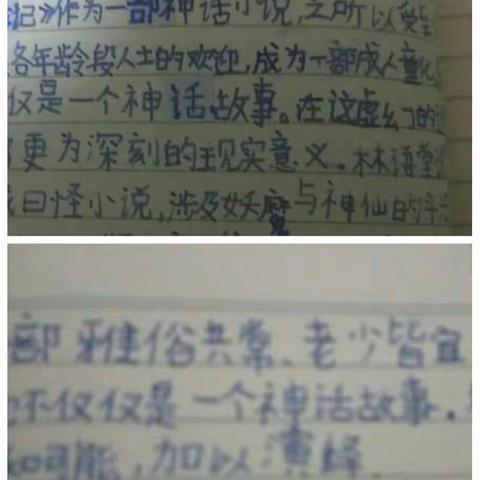 记》作为一部神话小说,之所以受
各年龄段人士的欢迎,成为一部成人童化
仅是一个神话故事。在这虚幻的
更为深刻的现实意义。林语堂
曰怪小说,涉及妖魔与神仙的
部雅俗共常、老少皆宜
不仅仅是一个神话故事.
如可能,加以演绎